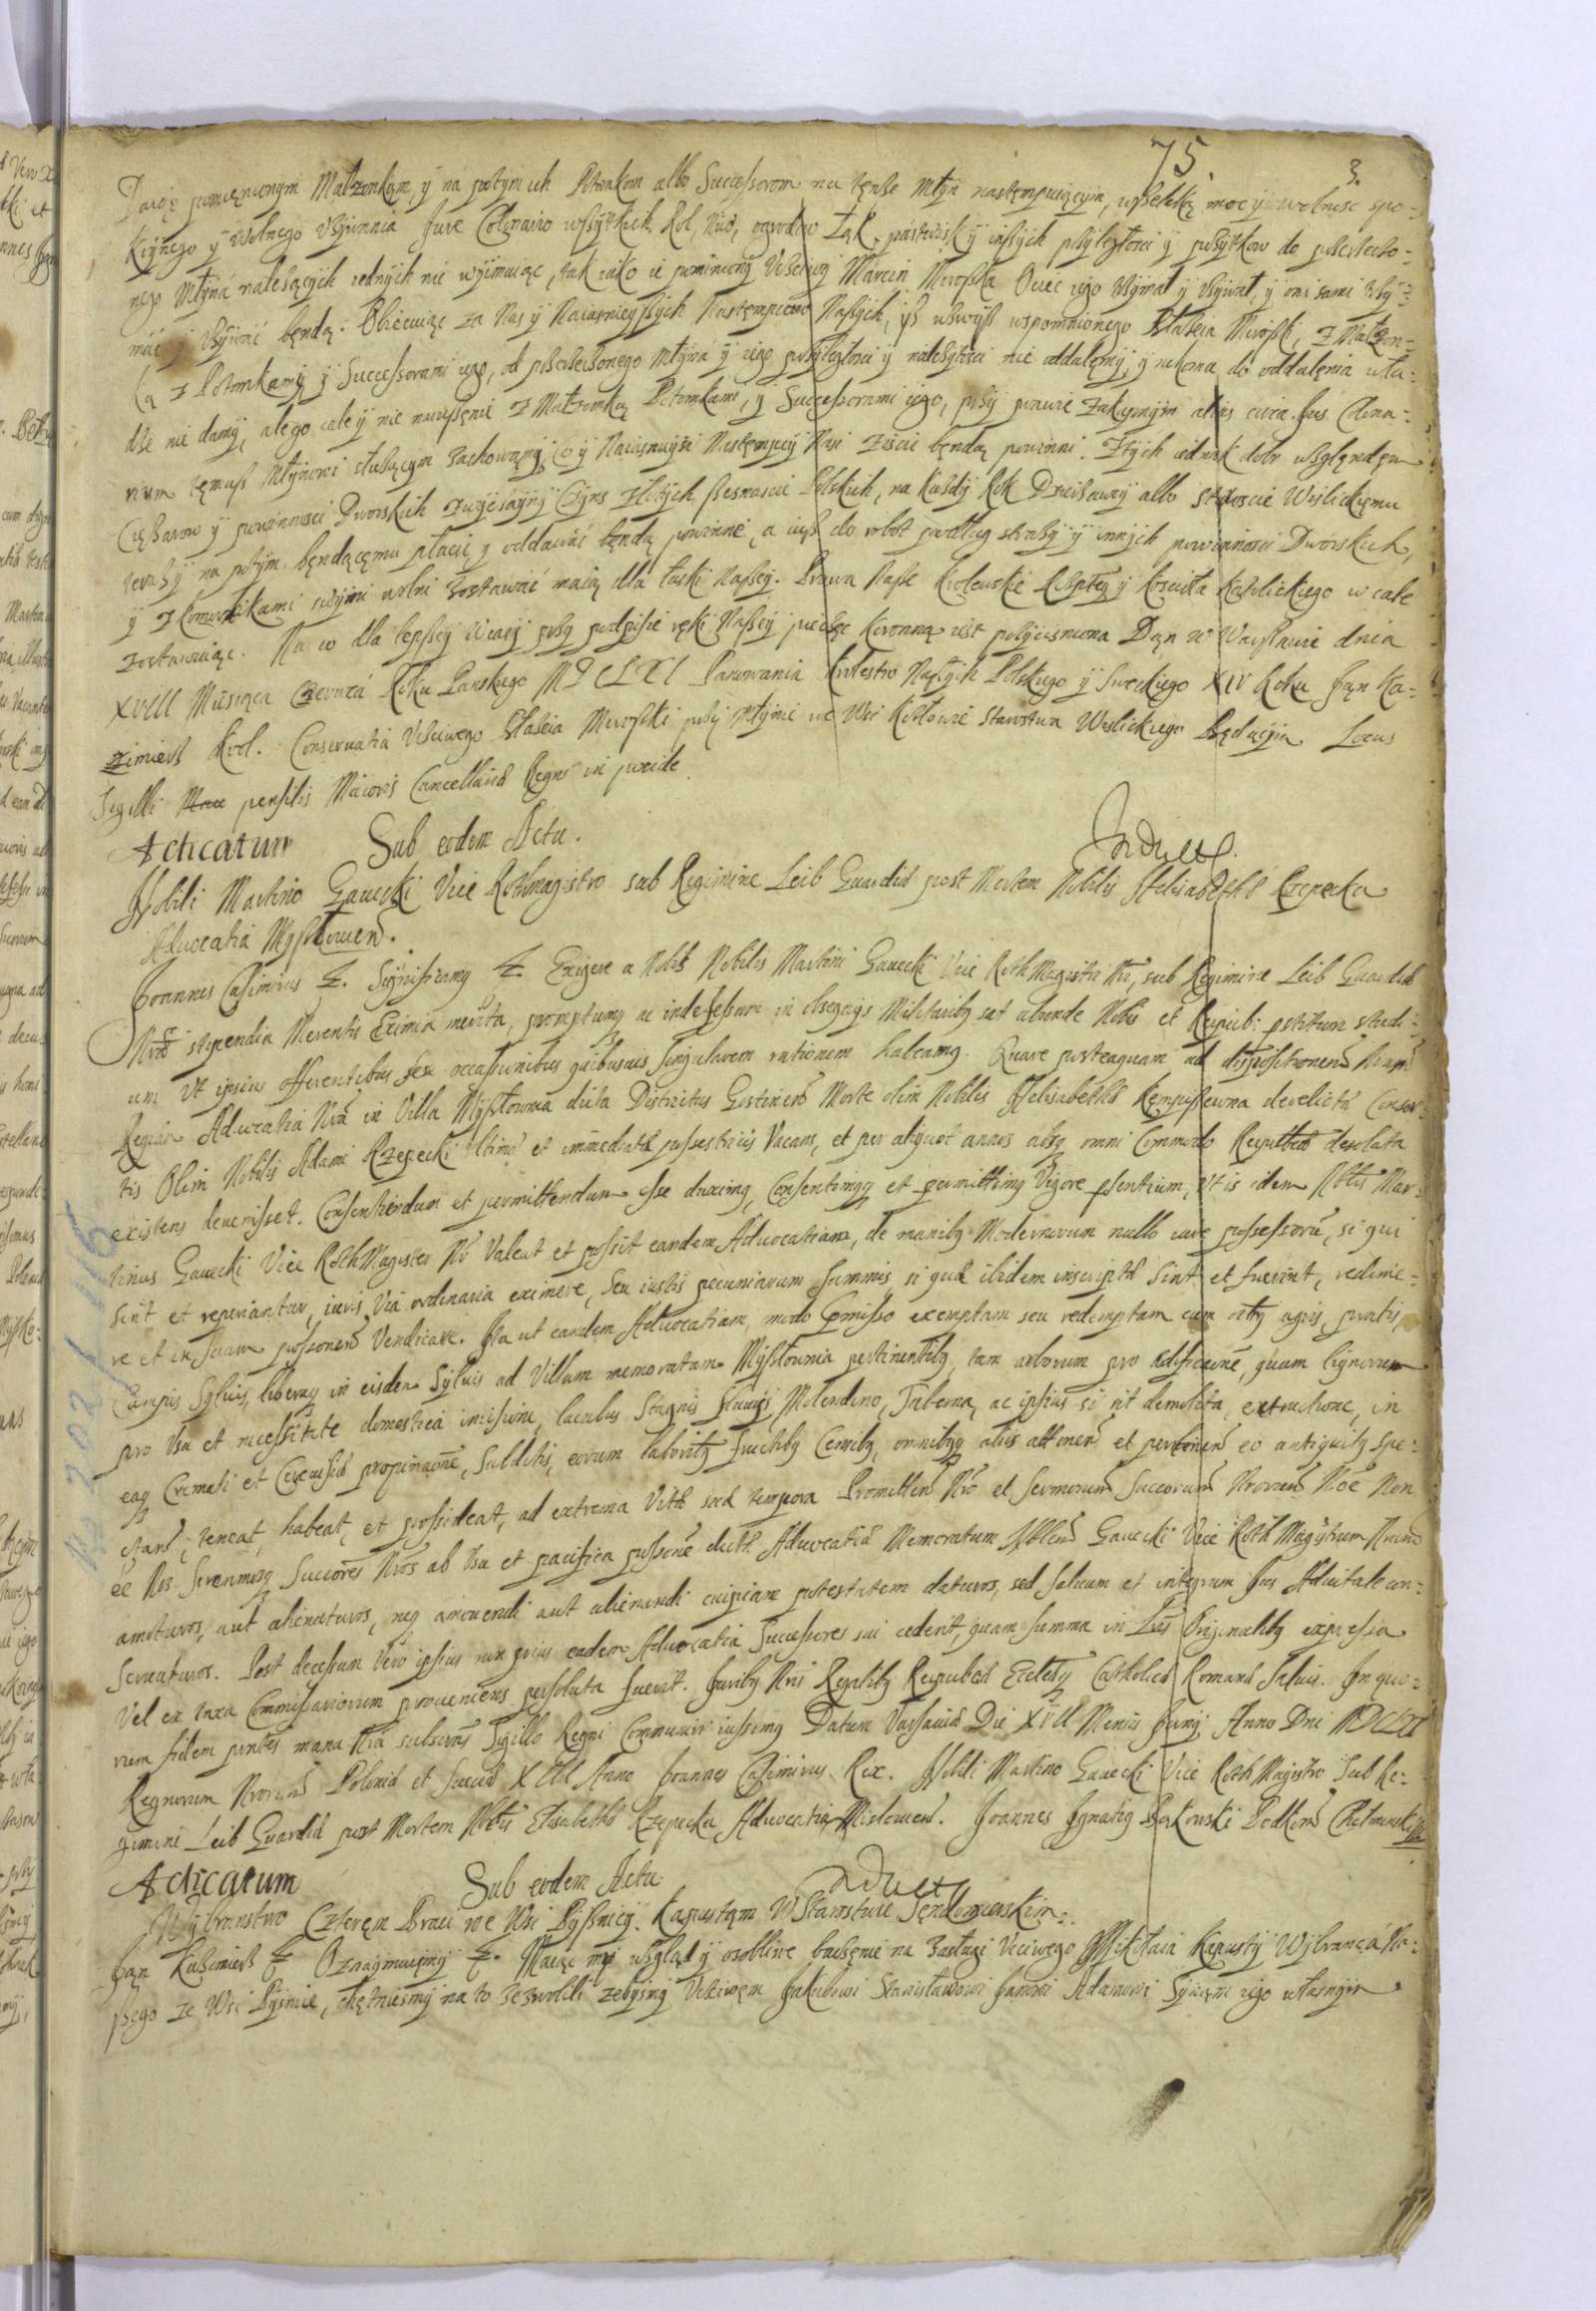 75. 3.
Daiąc pomięnionym Małzonkąm, ÿ na potym ich Potomkom albo Successorom na tęnże Młÿn nastęmpuiącym, wßelką moc ÿ wolnosc spo-
koÿnego ÿ wolnego Vżÿwania Jure Colęnario wßÿtkich Rol, Niw, ogrodow Łąk, pastwisk ÿ inßÿch przÿległosci ÿ pożÿtkow do
nego Młÿná należącÿch żadnÿch nie wÿimuiąc, tak iáko ie pomieniony Vczciwy Marcin Mroßka Ociec iego trzÿmał ÿ vżÿwał, ÿ oni sami trzÿ-
mać ÿ vżÿwáć będą. Obiecuiąc za Nas ÿ Naiasnieÿßÿch Nastęmpcow Naßÿch, iż wzwÿß wspomnionego Błażeia Mroßki, z Małżon-
ką z Potomkamÿ ÿ Successorami iego, od Młÿná ÿ iego przÿległosci ÿ należÿtosci nie oddalęmÿ, ÿ nikomu do oddalęnia wła-
dze nie damÿ, ale go cale ÿ nie narußęnie z Małzonką Potomkami, ÿ Successorami iego, przÿ prawie zakupnÿm alias circa Jus Colona-
rium tęmuß Młÿnowi służącÿm zachowamÿ, co ÿ Naiasnieÿśi Nastęmpcÿ Nasi ziścić będą powinni. Z tÿch iednak dobr wzglęndęm
Cięzarow ÿ powinnosci Dworskich zwÿczáÿnÿ Cÿns złotÿch ßesnascie Polskich, na każdÿ Rok Dzierżawcÿ albo Staroscie Wiślickiemu
teraz ÿ na potÿm będącęmu płacić ÿ oddawáć będą powinni, a iuß do robot podług strożÿ ÿ innÿch powinnosci Dworskich,
ÿ z komornikami swÿmi wolni zostawáć maią dla łaski Naßeÿ. Prawa Naße Krolewskie Rzeptey ÿ Koscioła Katolickiego w cale
zostawuiąc. Na co dla lepßeÿ wiarÿ przÿ podpisie ręki Naßeÿ pieczęc Koronną iest przÿcisniona Dąn w Warßawie dnia
XVIII Miesiąca Czerwcá Roku Panskiego MDCLXII Panowania Krolestw Naßÿch Polskiego ÿ Swedzkiego XIV Roku Jąn Ka-
zimierz Krol. Conservatia Vczciwego Błażeia Mroßki przÿ Młÿnie we Wsi Kotłowie Starostwa Wiślickiego Będącÿm Locus
Sigilli pensilis Maioris Cancellariæ Regni in
Acticatum Sub eodem Actu. Indult.
Nobili Martino Gawecki Vice Rothmagistro sub Regimine Leib Guardiæ post Mortem Nobilis Helisabethæ Rzepecka
Advocatia Mÿßłowień.
Joannes Casimirus &. Significamq &. Exigere a Nobis Nobilis Martini Gawecki Vice RothMagistri Nri, sub Regimine Leib Guardiæ
Nræ stipendia Merentis Eximia merita, promptumq ac indefessum in obsequÿs Militaribq sat abunde Nobis et Reipub: pstitum studi-
um Vt ipsius offerentibus se occasionibus quibusvis singularem rationem habeamq. Quare posteaquam ad dispositionem Nram
Regiam Advocatia Nra in Villa Mÿßłownia dicta Districtus Gostinen Morte olim Nobilis Helisabethæ Kęmpißewna derelictæ Consor-
tis Olim Nobilis Adami Rzepecki Vltimæ et immediatæ possestricis Vacans, et per aliquot annos absq omni Commodo Reipublicæ desolata
existens devenisset. Consentiendum et permittendum esse duximq, Consentimqq et permittimq Vigore psentium, vt is idem Nblis Mar-
tinus Gawecki Vice RothMagister Nr Valeat et possit eandem Advocatiam, de manibq Modernorum nullo iure possessorū, si qui
sint et reperiantur, iuris via ordinaria eximere, seu iustis pecuniarum summis si quæ ibidem inscriptæ sint et fuerint, redime-
re et in suam possonem Vendicare. Ita ut eandem Advocatiam, modo pmisso exemptam seu redemptam cum oĩbq agris, pratis,
Campis Sylvis, liberaq in eisdem Sÿlvis ad Villam memoratam Mÿßłownia pertinentibq, tam arborum pro ædificione, quam lignorum
pro Vsu et necessitate domestica incisione, lacubus Stagnis Fluvÿs Molendino, Taberna, ac ipsius si sit demolita, extructione, in
eaq Cremati et Cerevisiæ propinacione, Subditis, eorum laboribq fructibq Censibq, omnibqq alÿs attinen et pertinen eo antiquitq spe-
ctan, teneat, habeat, et possideat, ad extrema Vitæ suæ tempora Promitten Nro et Sermorum Succorum Nrorum Noē Non
eē Nos Serenmosq Succores Nros ab Vsu et pacifica possone dictæ Advocatiæ Memoratum Nblem Gawecki Vice Roth Magistrum Nrum
amoturos, aut alienaturos, neq amovendi aut alienandi cuipiam potestatem daturos, sed salvum et integrum Jus Advitale con-
servaturos. Post decessum Vero ipsius non prius eadem Advocatia Successores sui cedent, quam summa in Lris Originalibq expressa
Vel ex taxa Commissariorum proveniens persoluta fuerit. Juribq Nris Regalibq Reipublcæ Ecclesiæq Catholicæ Romanæ Salvis. In quo-
rum fidem pntes manu Nra subscrips Sigillo Regni Communiri iussimq Datum Varsaviæ Die XVII Mensis Junÿ Anno Dni MDCLXII
Regnorum Nrorum Poloniæ et Sueciæ XIIII Anno Joannes Casimirus Rex. Nobili Martino Gawecki Vice Roth Magistro Sub Re-
gimine Leib Guardiæ post Mortem Nblis Elisabethæ Rzepecka Advocatia Mislowien. Joannes Ignatiq Bąkowski Podkom Chełminski
Acticatum Sub eodem Actu Indult
Wÿbranstwo Czteręm Braci we Wsi Pÿßnicÿ. Kapustąm W Starostwie Sęndomierskim.
Jąn Kazimierz & Oznaÿmuięmÿ &. Maiąc mÿ wzgląd ÿ osobliwe baczęnie na zasługi Vcciwego Mikołaia Kapustÿ Wÿbrańca Na-
ßego ze Wsi Pÿśnice, chętnieśmÿ na to zezwolili żebÿsmÿ Vcciwęm Jakubowi Stanisławowi Janowi Adamowi Sÿnąm iego własnÿm